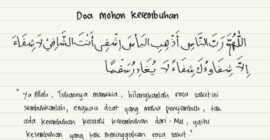 Doa mohon kesembuhan
اللَّهُمَّ رَبَّ النَّاسِ أَذْهِبِ الْبَأْسَ إِشْفِي أَنْتَ الشَّافِي لَا شِفَاءَ
إِلَّا شِفَاؤُكَ شِفَاءً لَا يُغَادِرُ سَقَمًا
" Ya Allah, Tuhannya manusia, hilangkanlah rasa sakit ini
sembuhkanlah, engkau dzat yang maha penyembuh, tak
ada kesembuhan kecuali kesembuhan dari-Mu, yaitu
kesembuhan yang tak meninggalkan rasa sakit "